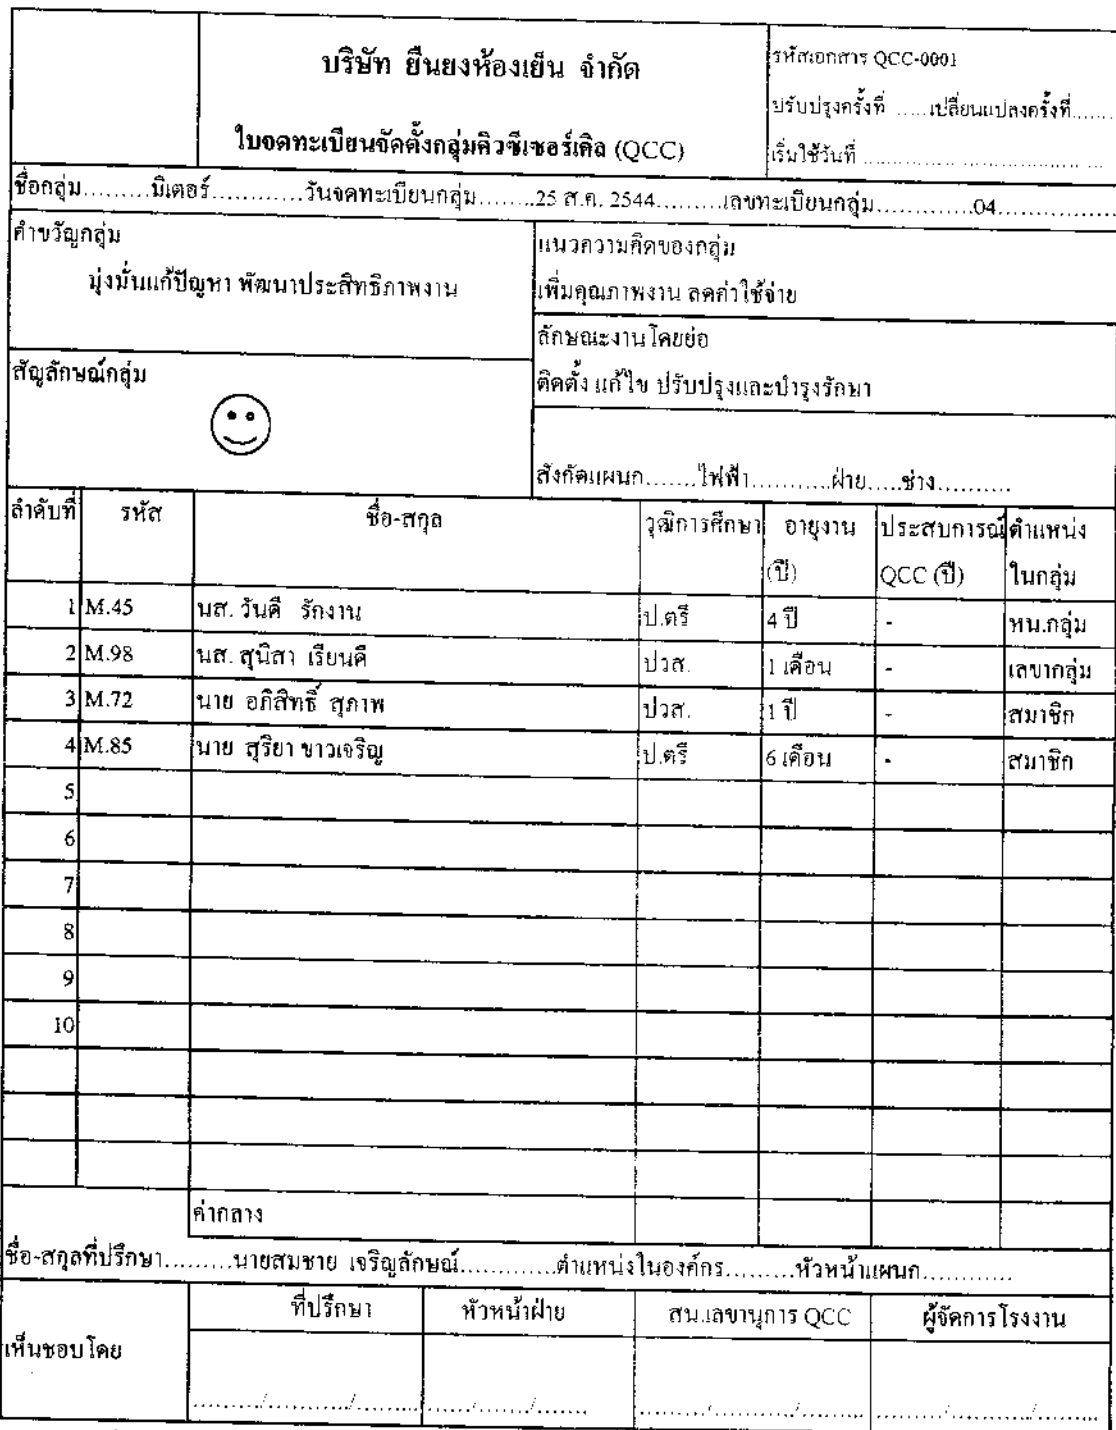 บริษัท ยืนยงห้องเย็น จำกัด
ใบจดทะเบียนจัดตั้งกลุ่มคิวซีเซอร์เคิล (QCC)
รหัสเอกสาร QCC-0001
ปรับปรุงครั้งที่ ......เปลี่ยนแปลงครั้งที่.......
เริ่มใช้วันที่ ................................
ชื่อกลุ่ม.........มิเตอร์............วันจดทะเบียนกลุ่ม........25 ส.ค. 2544.........เลขทะเบียนกลุ่ม.............04................
คำขวัญกลุ่ม
มุ่งมั่นแก้ปัญหา พัฒนาประสิทธิภาพงาน
แนวความคิดของกลุ่ม
เพิ่มคุณภาพงาน ลดค่าใช้จ่าย
ลักษณะงานโดยย่อ
ติดตั้ง แก้ไข ปรับปรุงและบำรุงรักษา
สัญลักษณ์กลุ่ม
สังกัดแผนก.......ไฟฟ้า...........ฝ่าย.....ช่าง..........
ลำดับที่ รหัส ชื่อ-สกุล วุฒิการศึกษา อายุงาน (ปี) ประสบการณ์ QCC (ปี) ตำแหน่งในกลุ่ม
1 M.45 นส. วันดี รักงาน ป.ตรี 4 ปี - หน.กลุ่ม
2 M.98 นส. สุนิสา เรียนดี ปวส. 1 เดือน - เลขากลุ่ม
3 M.72 นาย อภิสิทธิ์ สุภาพ ปวส. 1 ปี - สมาชิก
4 M.85 นาย สุริยา ขาวเจริญ ป.ตรี 6 เดือน - สมาชิก
5
6
7
8
9
10
ค่ากลาง
ชื่อ-สกุลที่ปรึกษา.........นายสมชาย เจริญลักษณ์.............ตำแหน่งในองค์กร.........หัวหน้าแผนก............
เห็นชอบโดย
ที่ปรึกษา หัวหน้าฝ่าย สน.เลขานุการ QCC ผู้จัดการโรงงาน
........./.........../........ ....../......./....... ........./.........../........ ........./.........../........